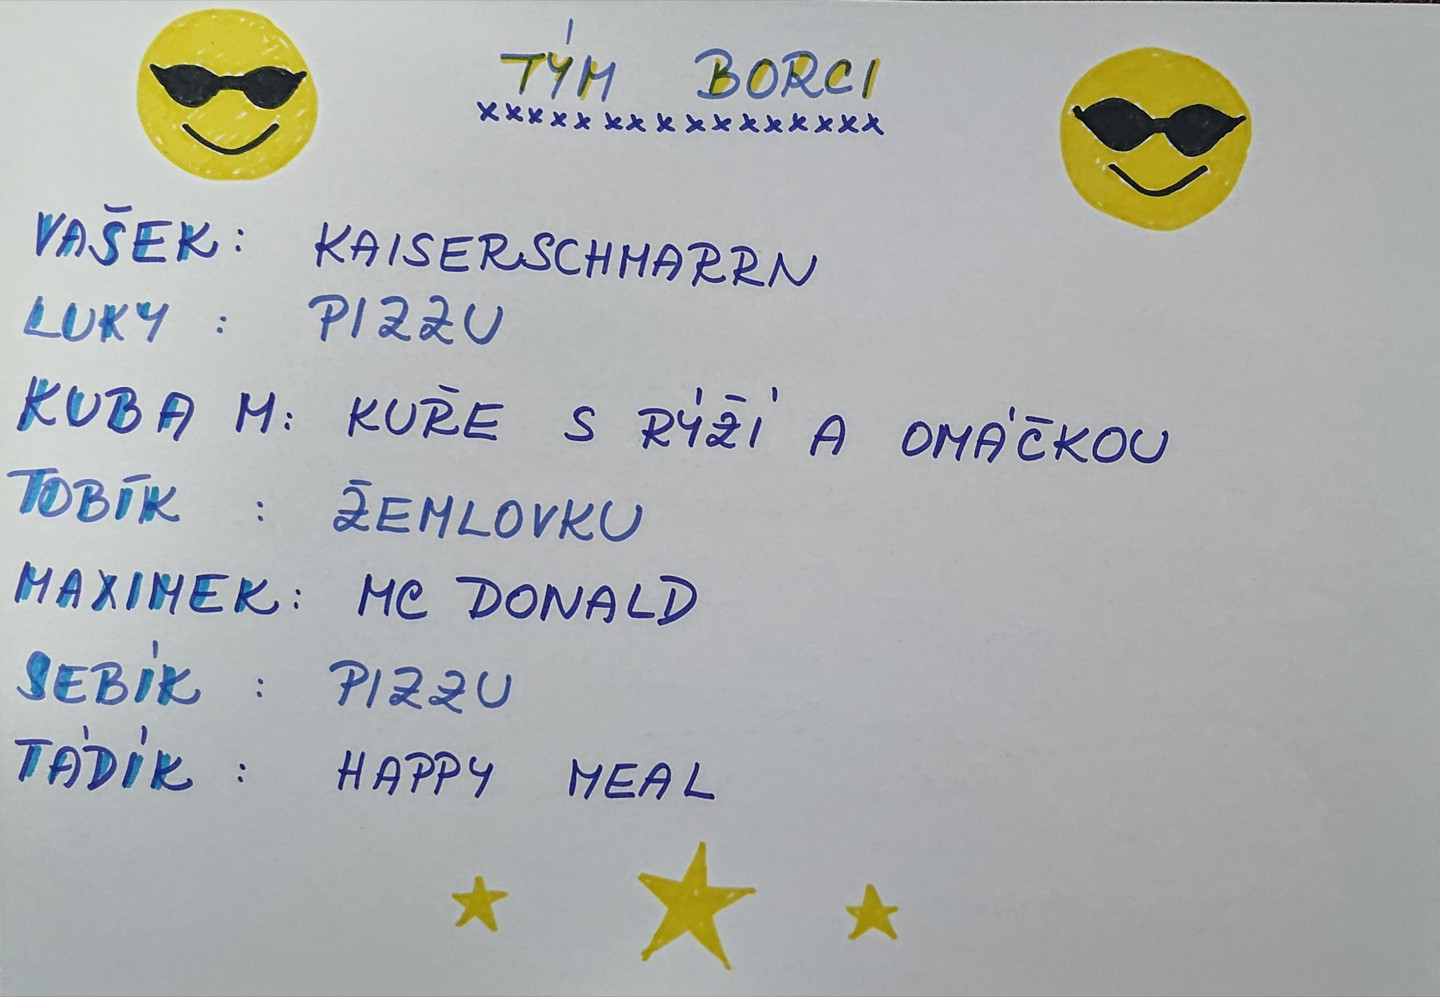 TÝM BORCI
xxxxxxxxxxxxxxxx
VAŠEK: KAISERSCHMARRN
LUKY : PIZZU
KUBA M: KUŘE S RÝŽÍ A OMÁČKOU
TOBÍK : ŽEMLOVKU
MAXIMEK: MC DONALD
SEBÍK : PIZZU
TÁDÍK : HAPPY MEAL